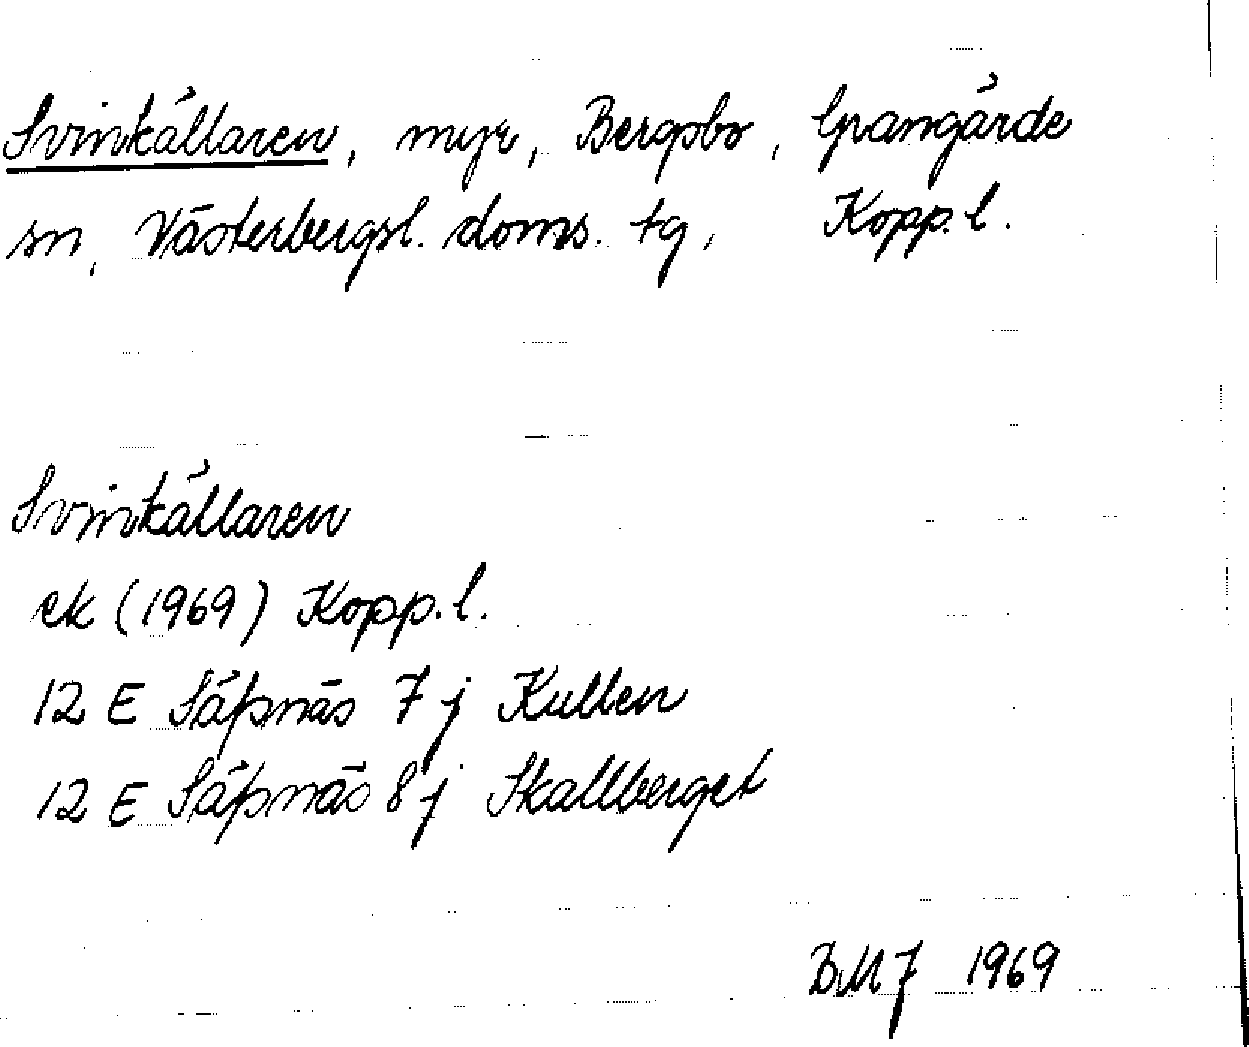 Svinkållaren, myr, Bergsbo, Grangärde
sn, Västerbergsl. doms. tg, Kopp. l.
Svinkållaren
ek (1969) Kopp. l.
12 E Säfsnäs 7 j Kullen
12 E Säfsnäs 8 j Skallberget
BMJ 1969